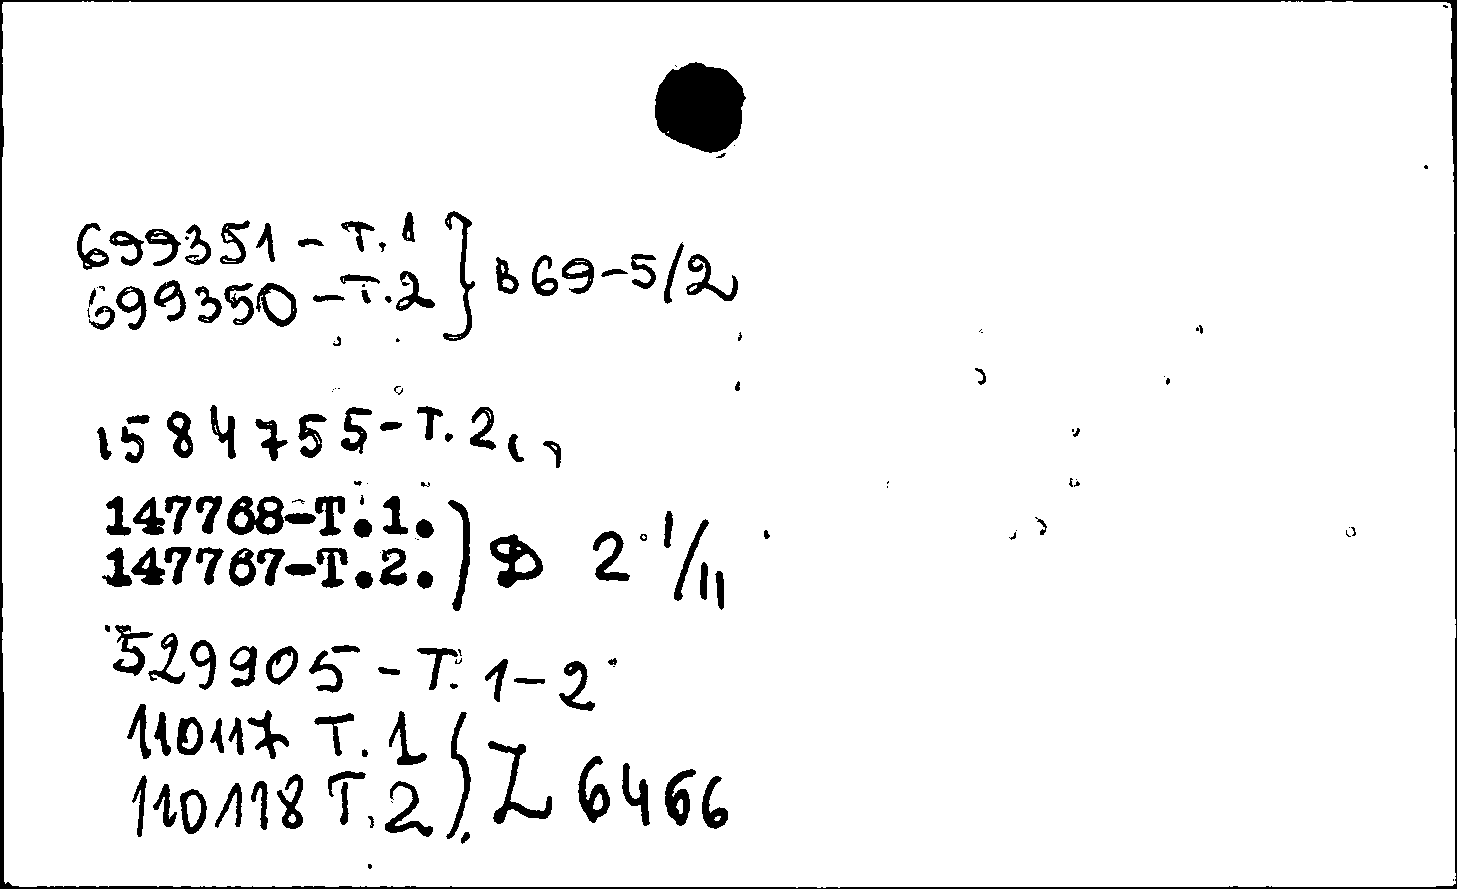 699351 - Т. 1 } В 69-5/2
699350 - Т. 2
1584755 - Т. 2
147768-Т.1. ) Ф 2 1/11
147767-Т.2.
529905 - Т. 1-2
110117 Т. 1 } Z 6466
110118 Т. 2